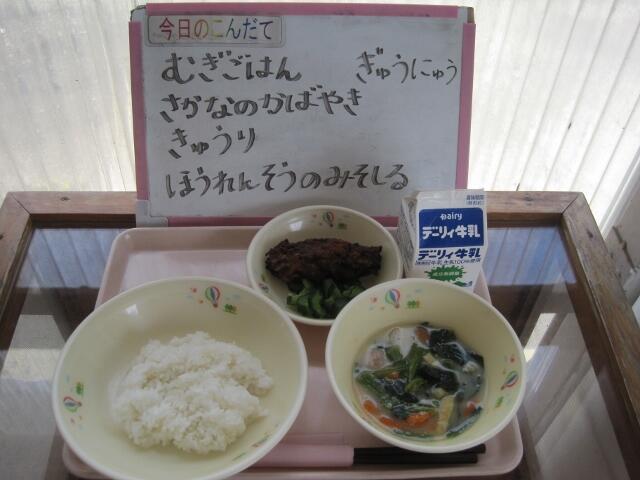 今日のこんだて
むぎごはん ぎゅうにゅう
さかなのかばやき
きゅうり
ほうれんそうのみそしる
Dairy
デーリィ牛乳
デーリィ牛乳